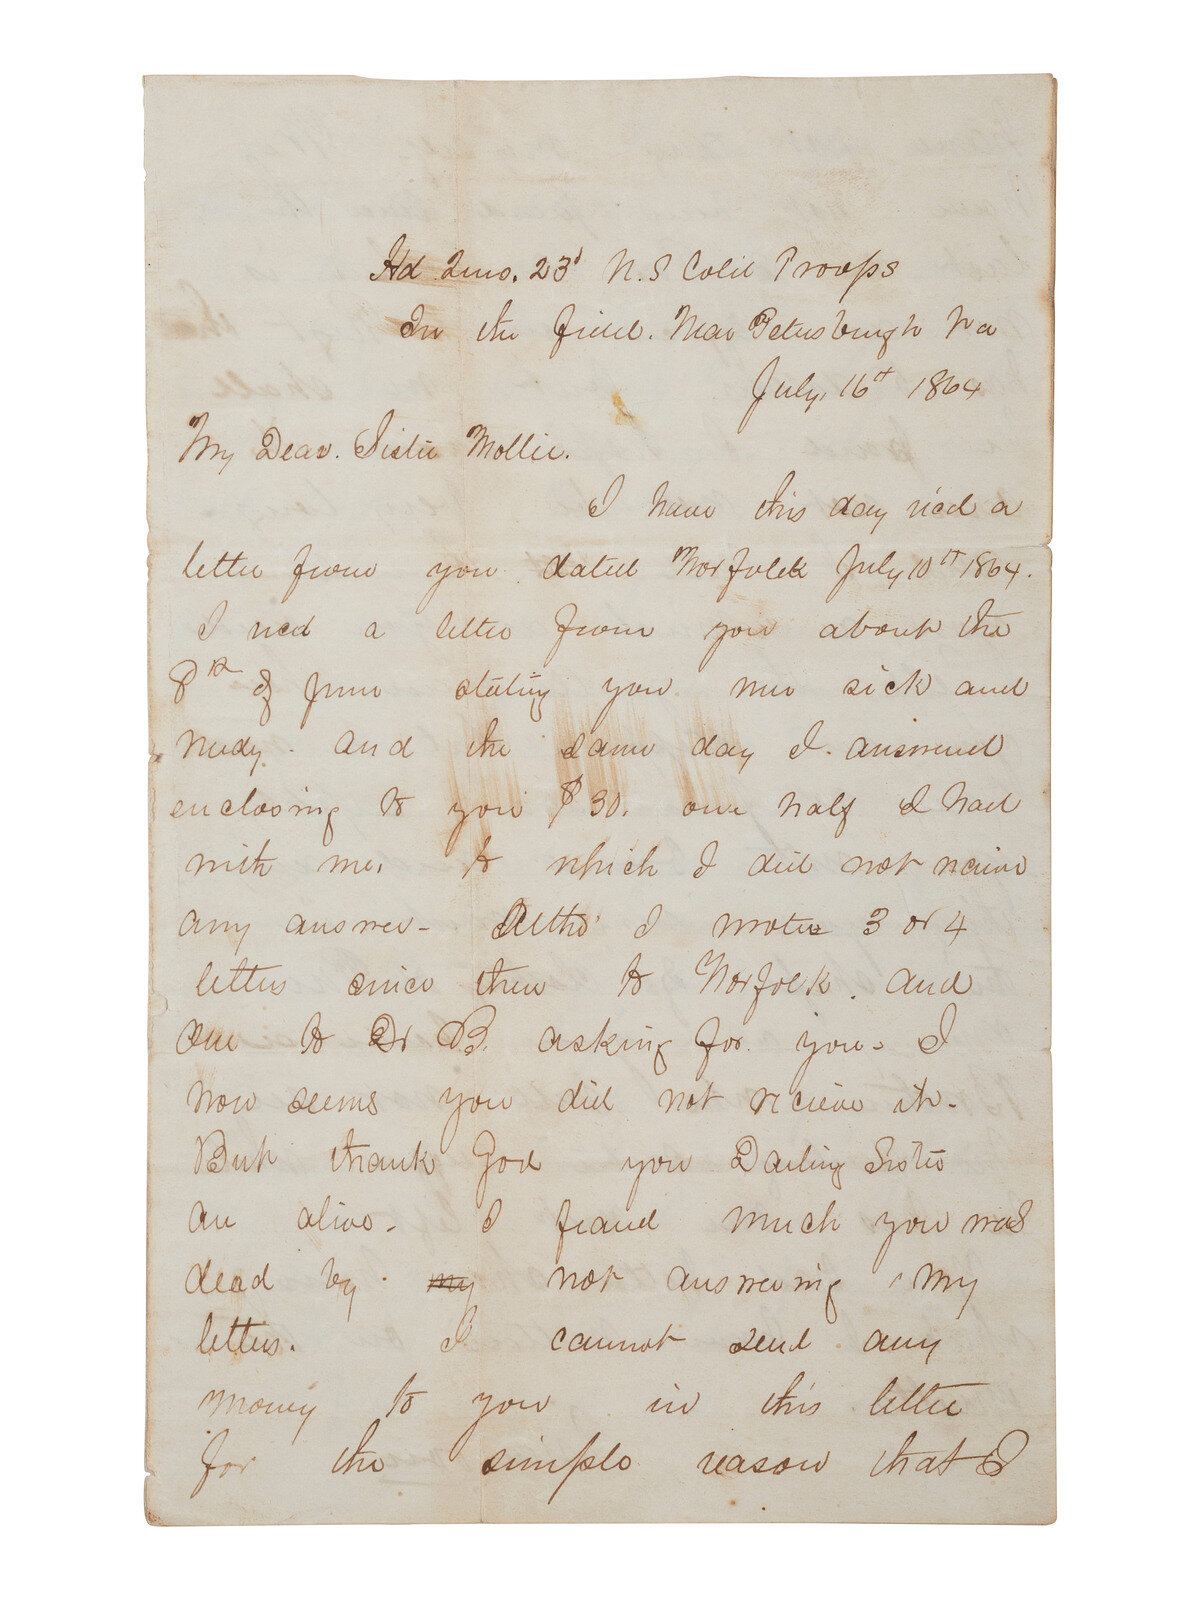 Hd Qurs. 23d U.S Cold Troops
In the field. Near Petersburgh Va
July, 16th 1864
My Dear. Sister Mollie.
I have this day rec'd a
letter from you dated Norfolk July 10th 1864.
I recd a letter from you about the
8th of June stating you were sick and
needy. And the same day I. answered
enclosing to you $30. one half I had
with me, to which I did not receive
any answer - Altho' I wrote 3 or 4
letters since then to Norfolk. and
one to Dr B. asking for you - I
now seems you did not recieve it -
But thank God you Darling Sister
are alive - I feared much you was
dead by my not answering my
letters. I cannot send any
money to you in this letter
for the simple reason that I